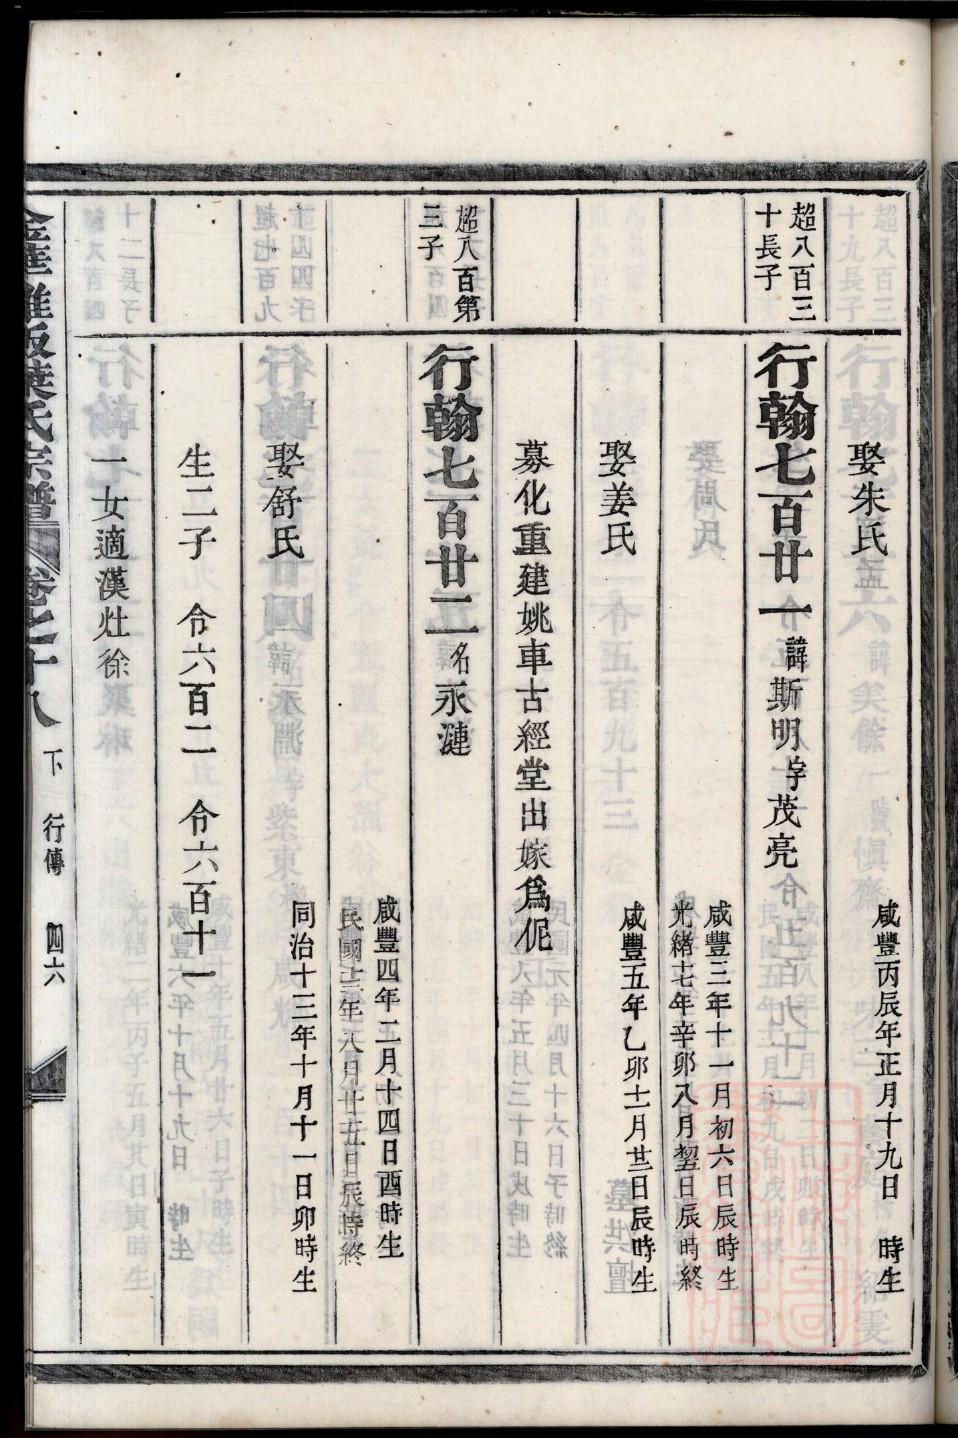 娶朱氏
咸豐丙辰年正月十九日 時生
超八百三
十長子
行翰七百廿一 諱斯明字茂亮
咸豐三年十一月初六日辰時生
光緒十七年辛卯八月初四日辰時終
娶姜氏
咸豐五年乙卯十二月廿三日辰時生
募化重建姚車古經堂出嫁為伲
超八百第
三子
行翰七百廿二 名永漣
咸豐四年二月十四日酉時生
民國十三年八月廿五日辰時終
娶舒氏
同治十三年十月十一日卯時生
生二子 令六百二 令六百十一
一女適漢灶徐
葉氏宗譜 卷之十八 下 行傳 四六